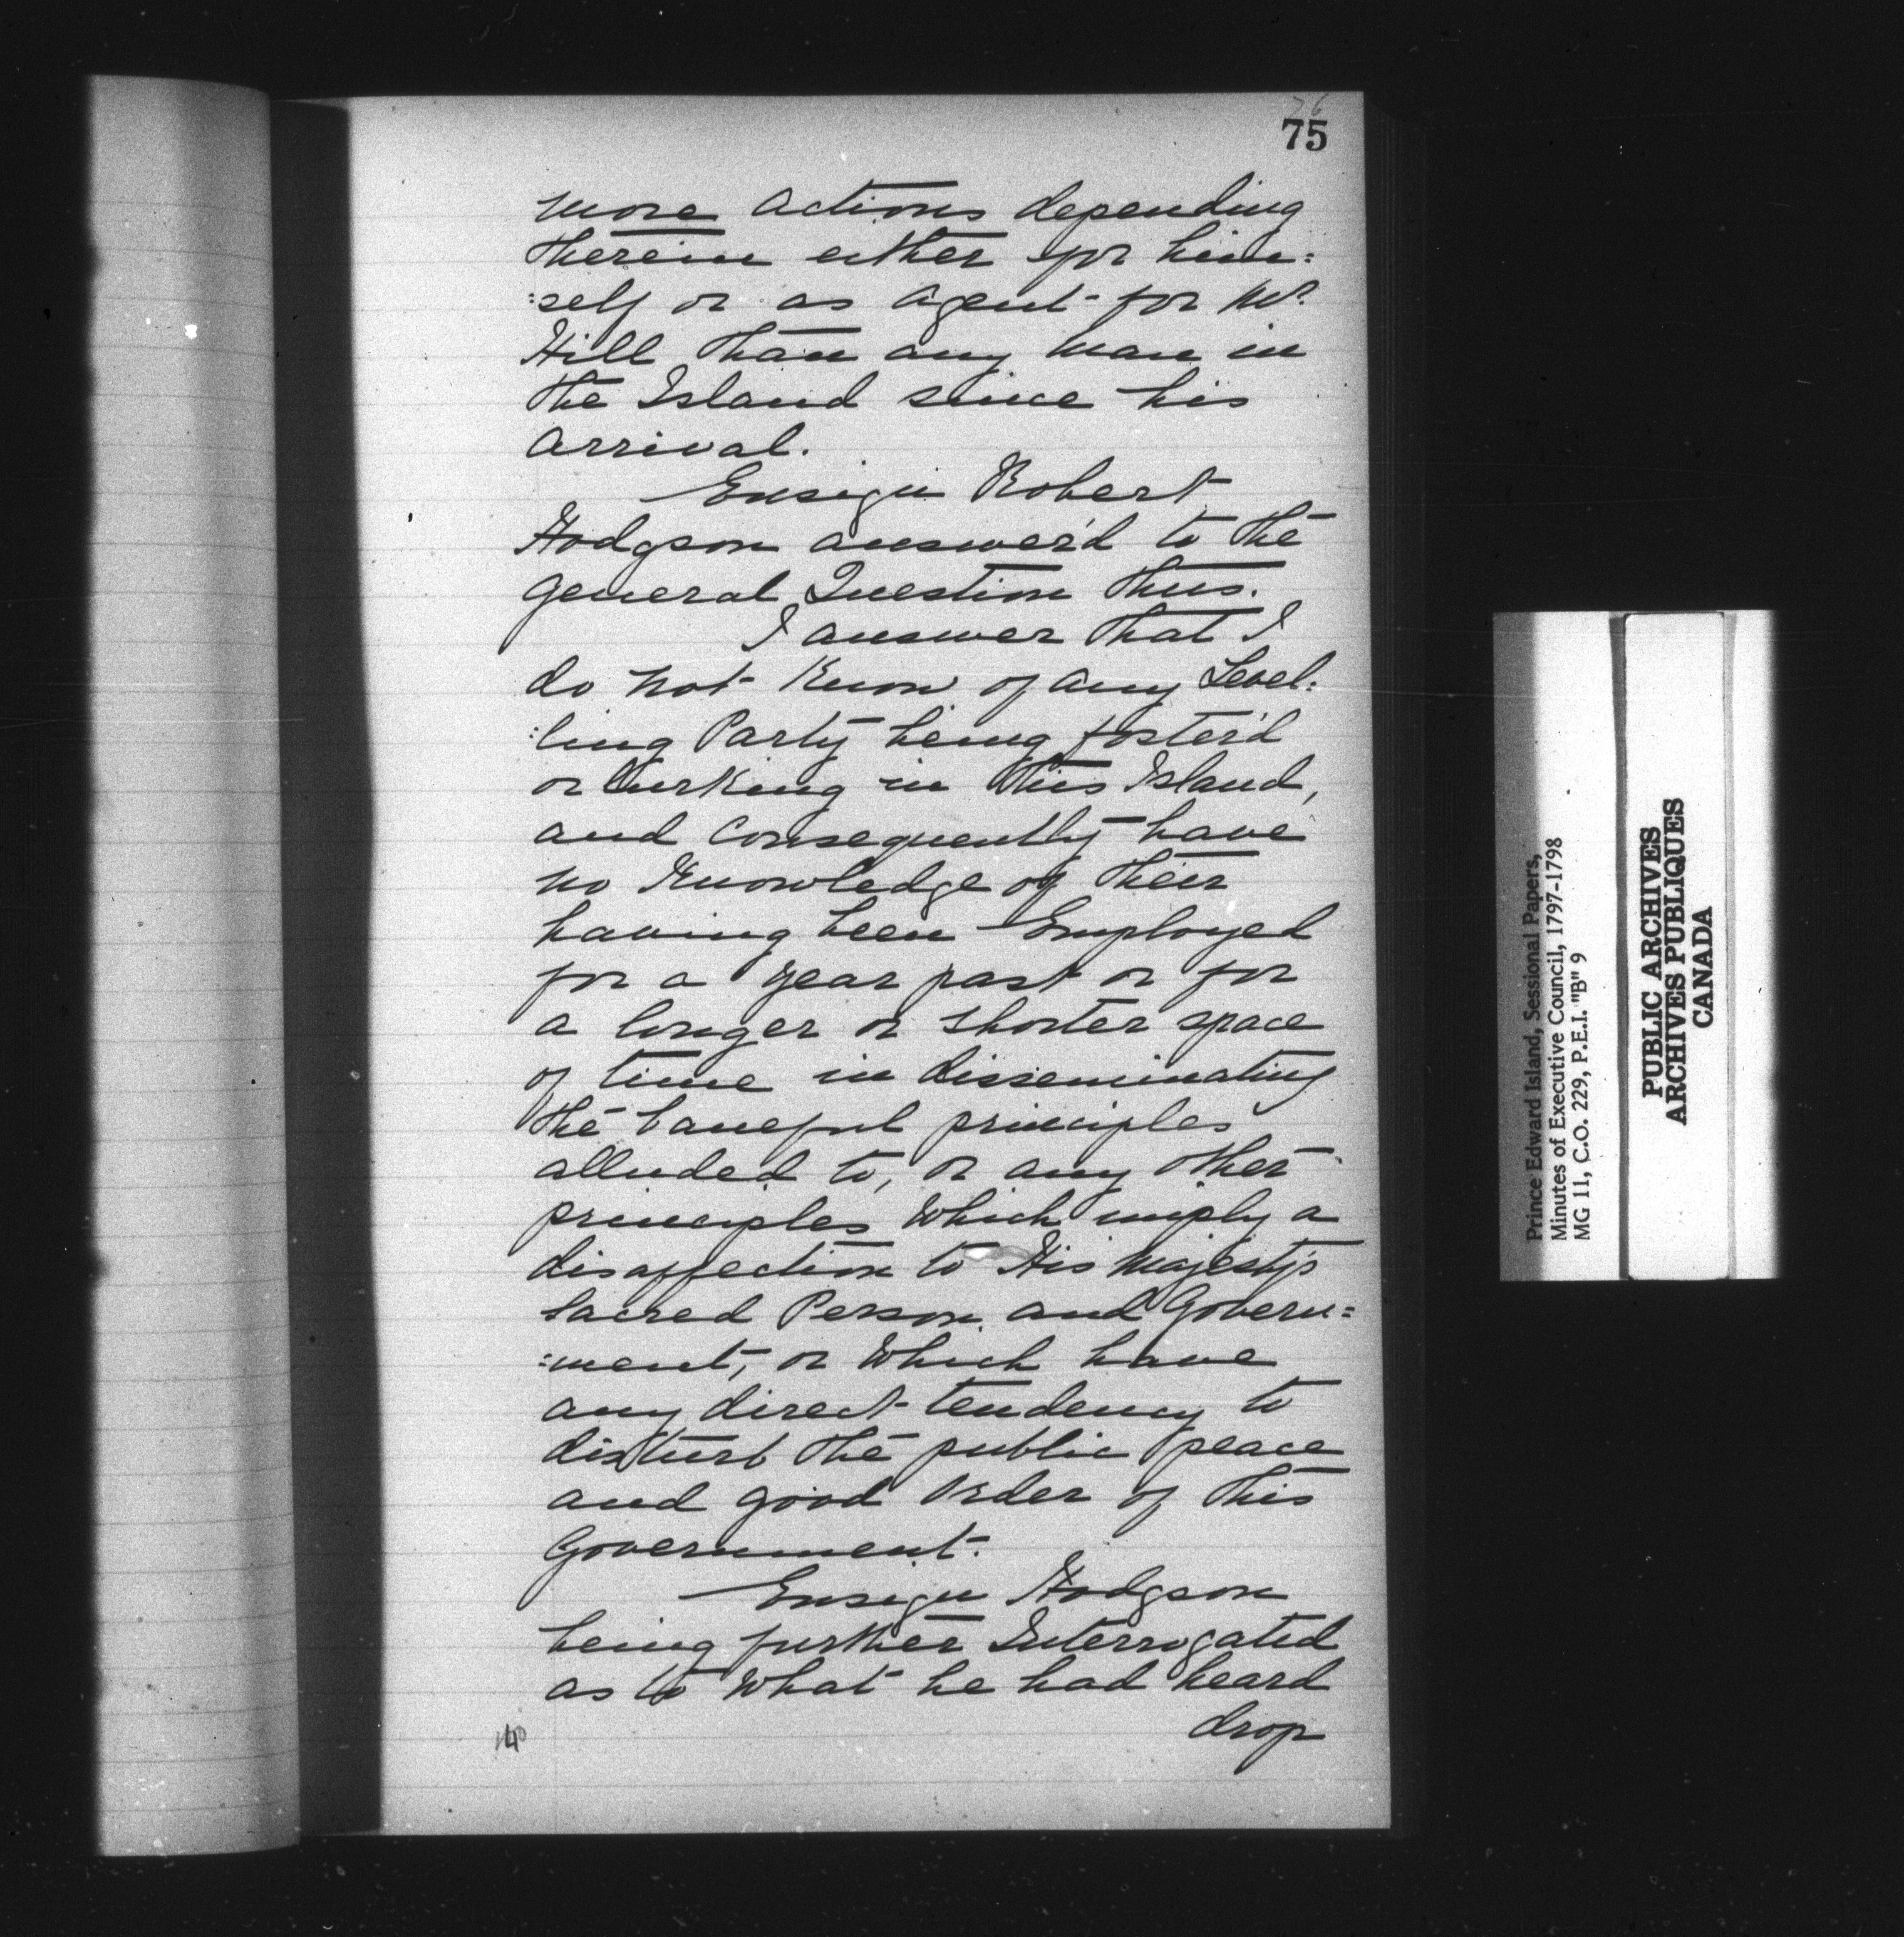 76
75
more actions depending
therein either for him=
=self or as Agent for Mr.
Hill than any man in
the Island since his
arrival.
Ensign Robert
Hodgson answer'd to the
general Question thus.
I answer that I
do not know of any Level=
=ling Party being foster'd
or lurking in this Island,
and consequently have
no Knowledge of their
having been Employed
for a year past or for
a longer or shorter space
of time in disseminating
the baneful principles
alluded to, or any other
principles which imply a
disaffection to His Majesty's
Sacred Person and Govern=
=ment, or which have
any direct tendency to
disturb the public peace
and good Order of this
Government.
Ensign Hodgson
being further Interrogated
as to what he had heard
drop
Prince Edward Island, Sessional Papers,
Minutes of Executive Council, 1797-1798
MG 11, C.O. 229, P.E.I. "B" 9
PUBLIC ARCHIVES
ARCHIVES PUBLIQUES
CANADA